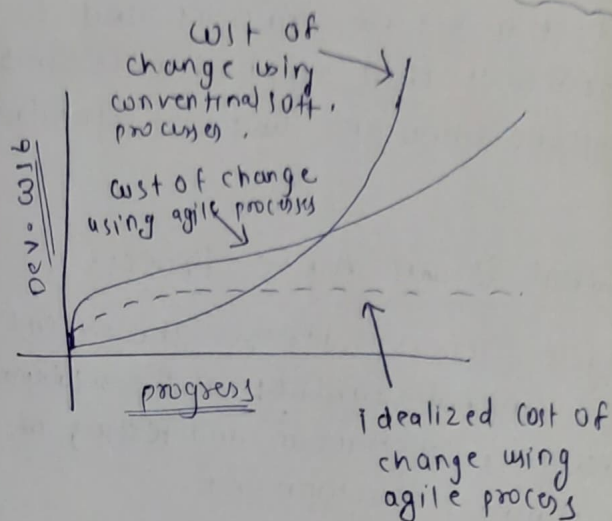 cost of
change using
conventinal soft.
processes.
cost of change
using agile processes
Dev. costs
progress
idealized cost of
change using
agile process